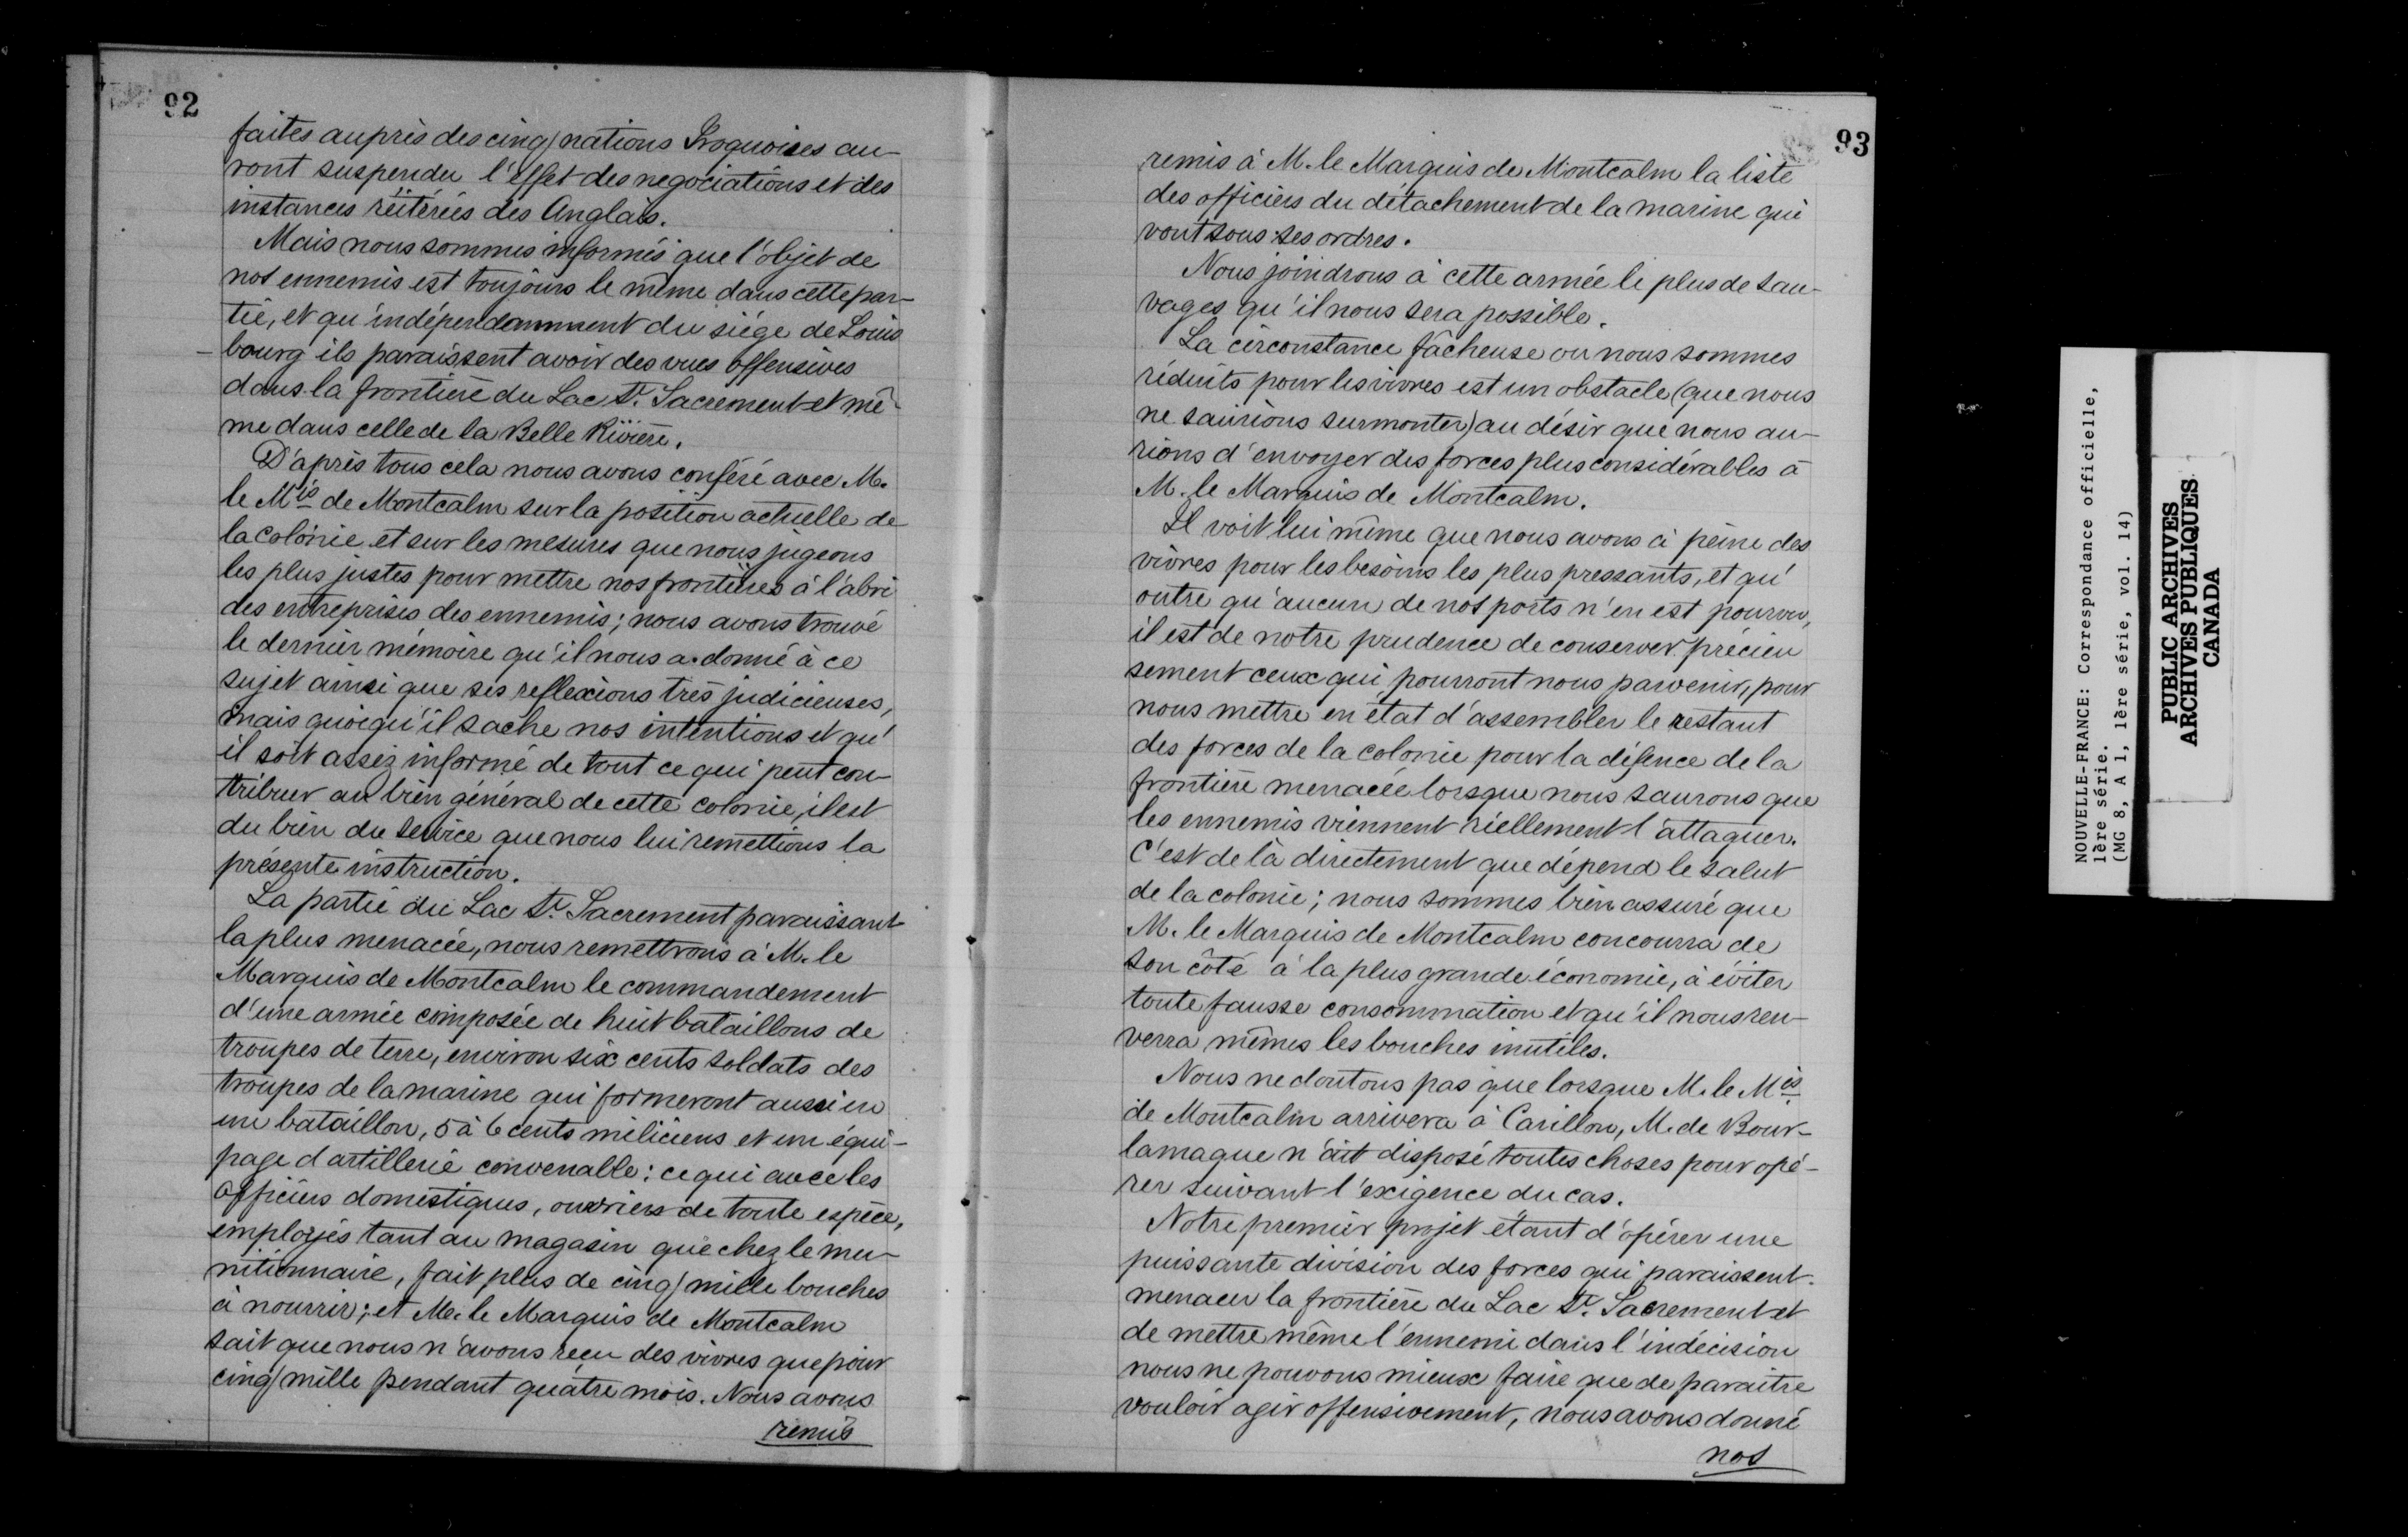 92
faites auprès des cinq nations Iroquoises au-
ront suspendu l'effet des negociations et des
instances réïtérées des Anglais.
Mais nous sommes informés que l'objet de
nos ennemis est toujours le même dans cette par-
tie, et qu'indépendamment du siége de Louis
-bourg ils paraissent avoir des vues offensives
dans la frontière du Lac St. Sacrement et mê-
me dans celle de la Belle Rivière.
D'après tous cela nous avons conféré avec M.
le Mis de Montcalm sur la position actuelle de
la colonie et sur les mesures que nous jugeons
les plus justes pour mettre nos frontières à l'abri
des entreprises des ennemis; nous avons trouvé
le dernier mémoire qu'il nous a donné à ce
sujet ainsi que ses reflexions très judicieuses,
mais quoiqu'il sache nos intentions et qu'
il soit assez informé de tout ce qui peut con-
tribuer au bien général de cette colonie, il est
du bien du service que nous lui remettions la
présente instruction.
La partie du Lac St. Sacrement paraissant
la plus menacée, nous remettrons à M. le
Marquis de Montcalm le commandement
d'une armée composée de huit bataillons de
troupes de terre, environ six cents soldats des
troupes de la marine qui formeront aussi en
un bataillon, 5 à 6 cents miliciens et un équi-
page d'artillerie convenable: ce qui avec les
officiers domestiques, ouvriers de toute espèce,
employés tant au magasin que chez le mu-
nitionnaire, fait plus de cinq mille bouches
à nourrir; et M. le Marquis de Montcalm
sait que nous n'avons reçu des vivres que pour
cinq mille pendant quatre mois. Nous avons
remis
93
remis à M. le Marquis de Montcalm la liste
des officiers du détachement de la marine qui
vont sous ses ordres.
Nous joindrons à cette armée le plus de sau-
vages qu'il nous sera possible.
La circonstance fâcheuse ou nous sommes
réduits pour les vivres est un obstacle (que nous
ne saurions surmonter) au désir que nous au-
rions d'envoyer des forces plus considérables à
M. le Marquis de Montcalm.
Il voit lui même que nous avons à peine des
vivres pour les besoins les plus pressants, et qu'
outre qu'aucun de nos ports n'en est pourvu,
il est de notre prudence de conserver précieu
sement ceux qui pourront nous parvenir, pour
nous mettre en état d'assembler le restant
des forces de la colonie pour la défence de la
frontière menacée lorsque nous saurons que
les ennemis viennent réellement l'attaquer.
C'est de là directement que dépend le salut
de la colonie; nous sommes bien assuré que
M. le Marquis de Montcalm concourra de
son côté à la plus grande économie, à éviter
toute fausse consommation et qu'il nous ren-
verra mêmes les bouches inutiles.
Nous ne doutons pas que lorsque M. le Mis
de Montcalm arrivera à Carillon, M. de Bour-
lamaque n'ait disposé toutes choses pour opé-
rer suivant l'exigence du cas.
Notre premier projet étant d'opérer une
puissante division des forces qui paraissent
menacer la frontière du Lac St. Sacrement et
de mettre même l'ennemi dans l'indécision
nous ne pouvons mieux faire que de paraitre
vouloir agir offensivement, nous avons donné
nos
NOUVELLE-FRANCE: Correspondance officielle,
1ère série.
(MG 8, A 1, 1ère série, vol. 14)
PUBLIC ARCHIVES
ARCHIVES PUBLIQUES
CANADA